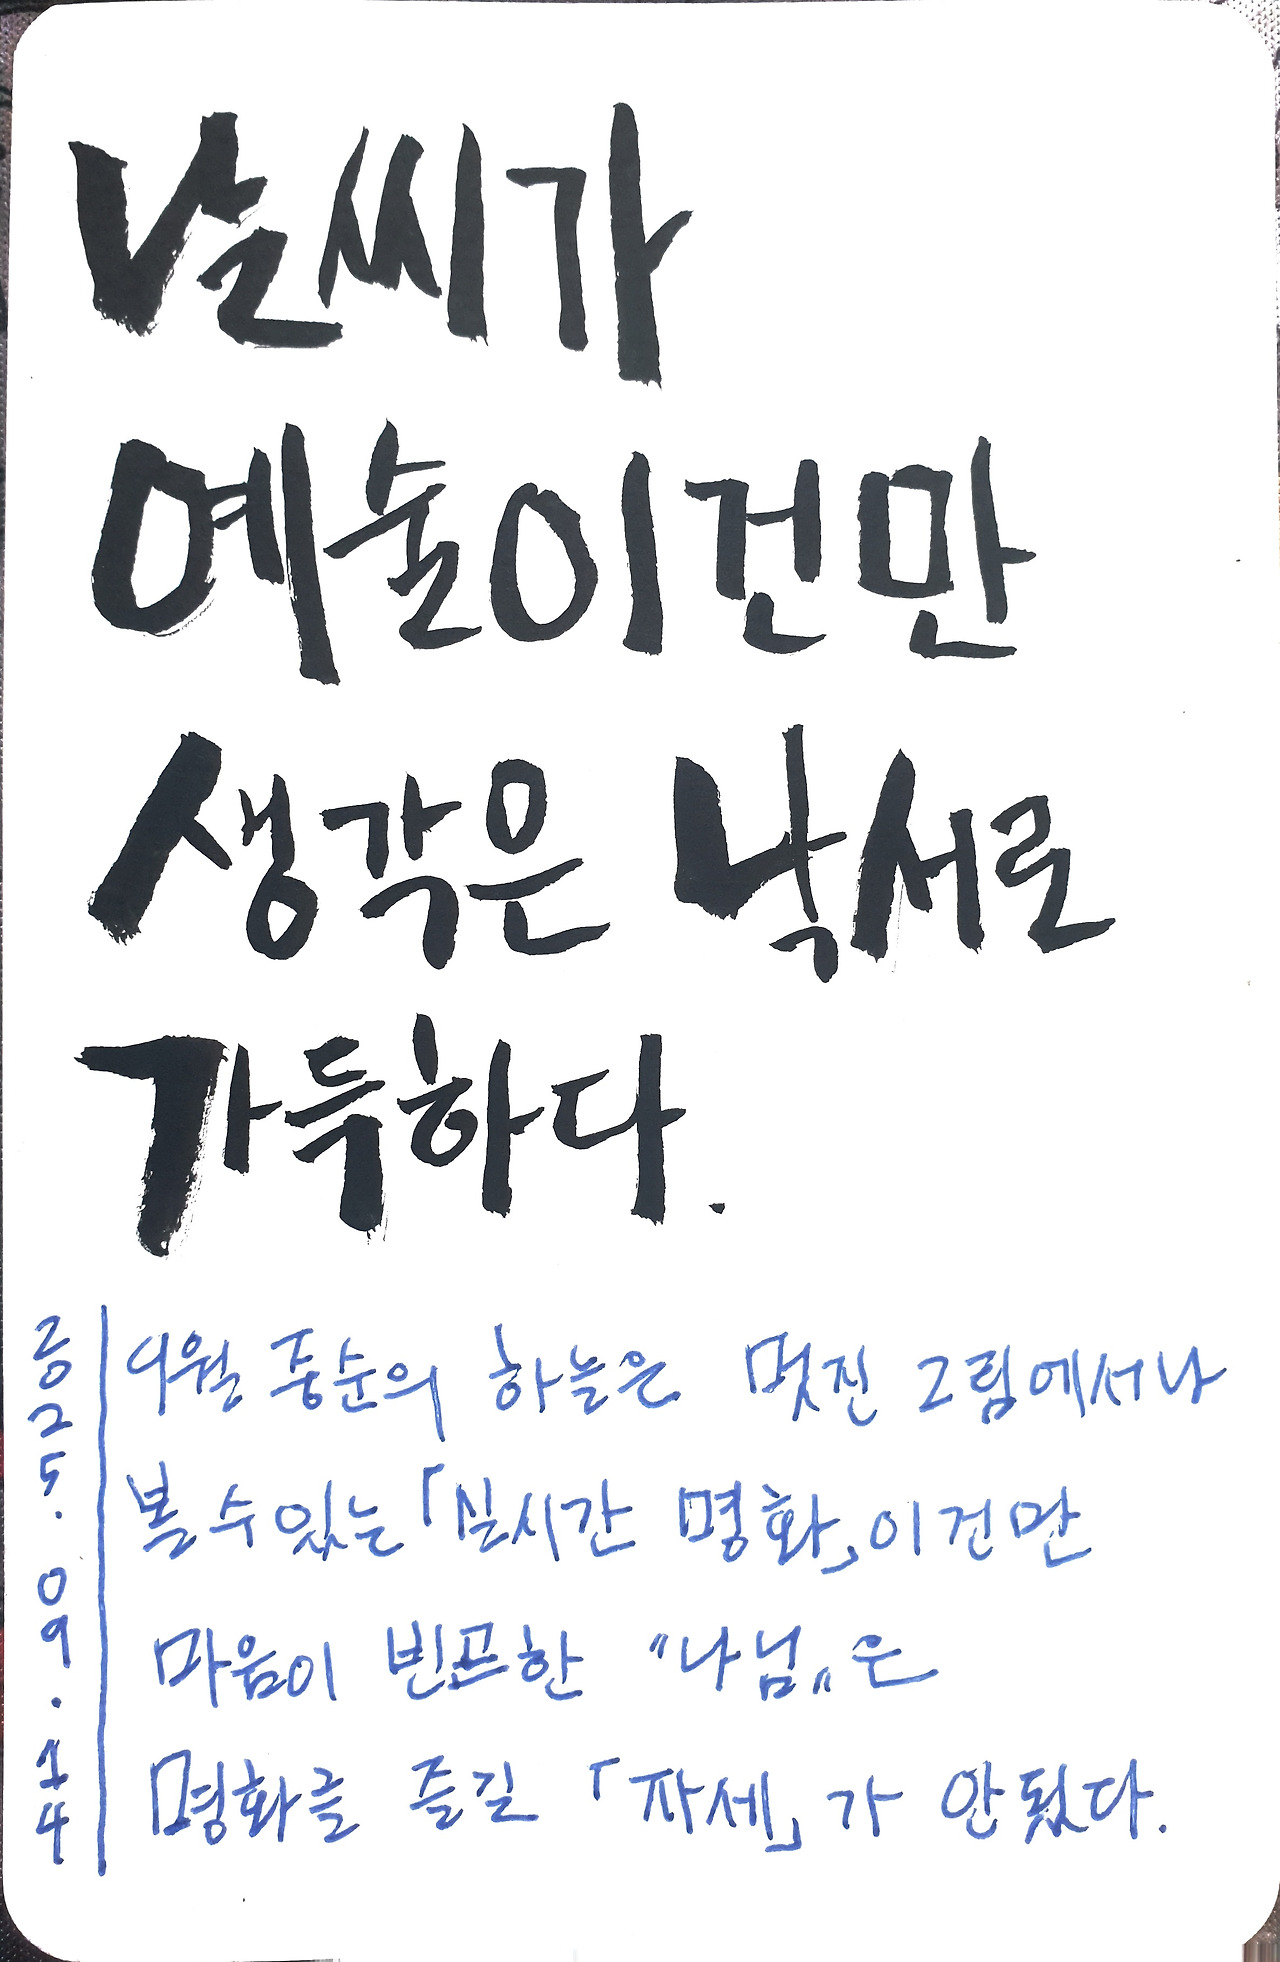 날씨가
예술이건만
생각은 낙서로
가득하다.
2025.09.14
9월 중순의 하늘은 멋진 그림에서나
볼 수 있는 「실시간 명화」이건만
마음이 빈곤한 "나님"은
명화를 즐길 「자세」가 안됬다.